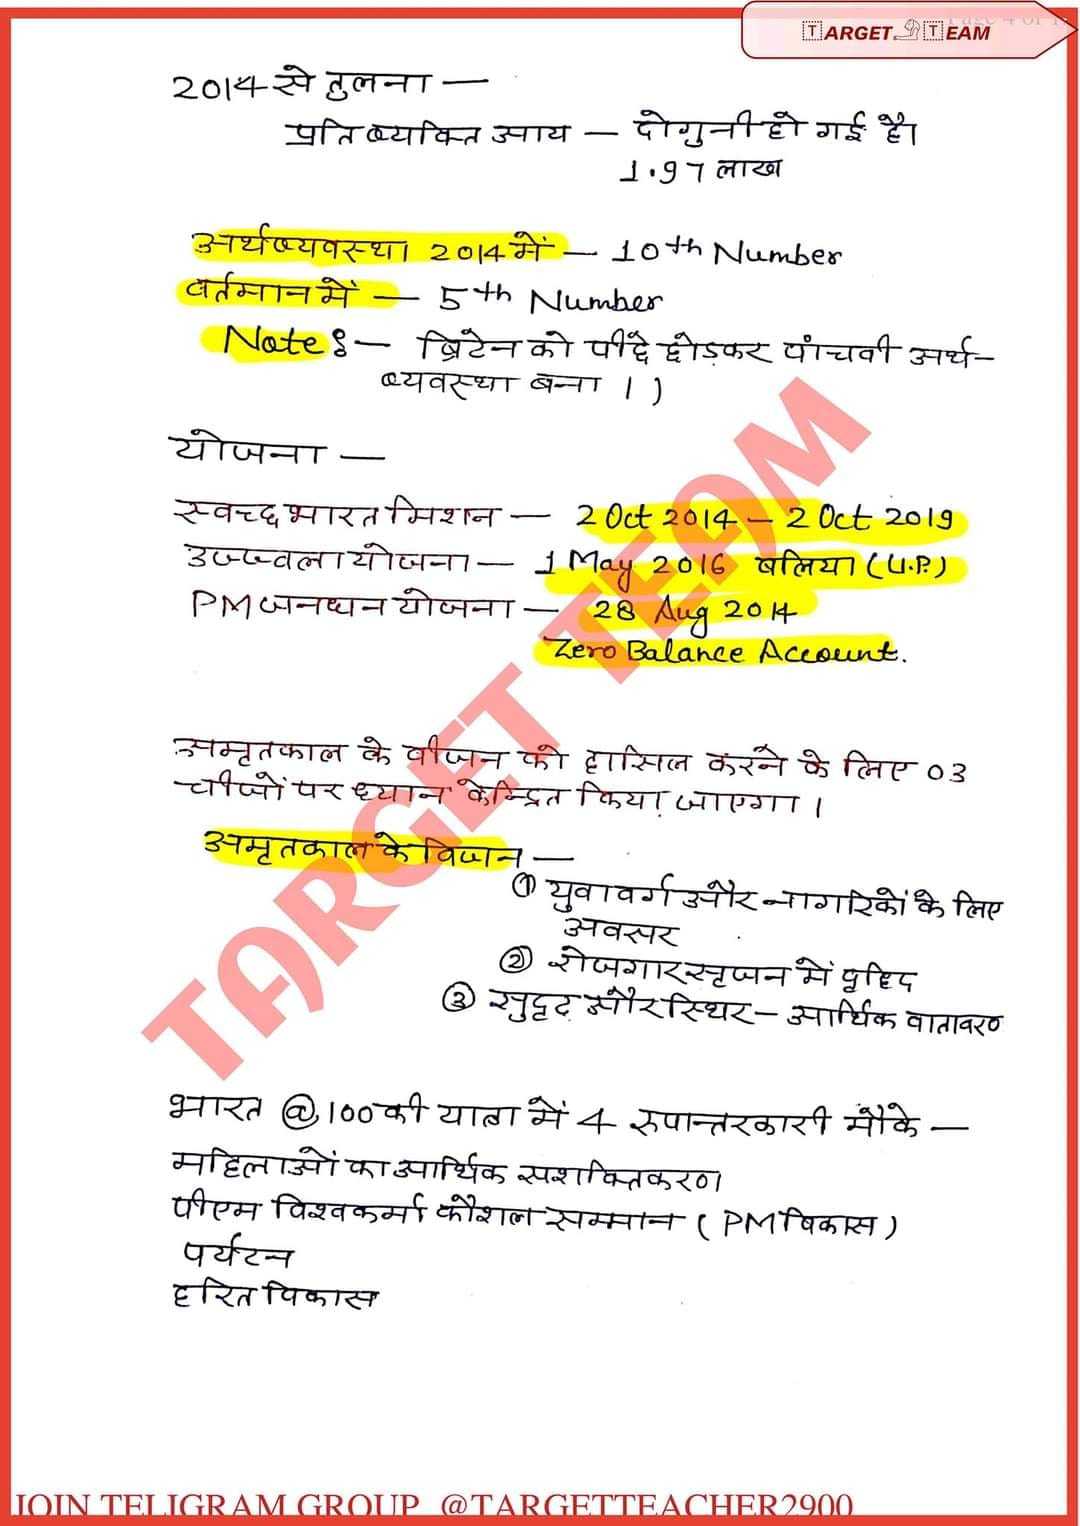 Page 4 of 1
TARGET TEAM
2014 से तुलना —
प्रति व्यक्ति आय — दोगुनी हो गई है।
1.97 लाख
अर्थव्यवस्था 2014 में — 10th Number
वर्तमान में — 5th Number
Note :— ब्रिटेन को पीछे छोड़कर पांचवी अर्थ-
व्यवस्था बना । )
योजना —
स्वच्छ भारत मिशन — 2 Oct 2014 – 2 Oct 2019
उज्ज्वला योजना — 1 May 2016 बलिया (U.P.)
PM जनधन योजना — 28 Aug 2014
Zero Balance Account.
अमृतकाल के वीजन को हासिल करने के लिए 03
चीजों पर ध्यान केन्द्रित किया जाएगा ।
अमृतकाल के विजन —
① युवावर्ग और नागरिकों के लिए
अवसर
② रोजगार सृजन में वृद्धि
③ सुदृढ़ और स्थिर – आर्थिक वातावरण
भारत @100 की यात्रा में 4 रूपान्तरकारी मौके —
महिलाओं का आर्थिक सशक्तिकरण
पीएम विश्वकर्मा कौशल सम्मान ( PM विकास )
पर्यटन
हरित विकास
TARGET TEAM
JOIN TELIGRAM GROUP @TARGETTEACHER2900